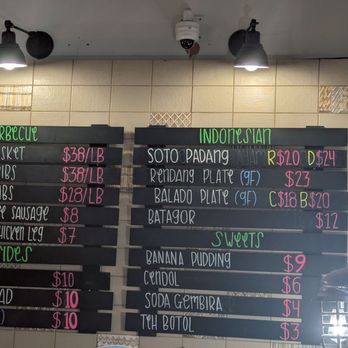 RBECUE
SKET $38/LB
RIBS $38/LB
IBS $28/LB
SAUSAGE $8
CHICKEN LEG $7
IDES
$10
AD $10
) $10
INDONESIAN
SOTO PADANG R$20 D$24
RENDANG PLATE (GF) $23
BALADO PLATE (GF) C$18 B$20
BATAGOR $12
SWEETS
BANANA PUDDING $9
CENDOL $6
SODA GEMBIRA $4
TEH BOTOL $3